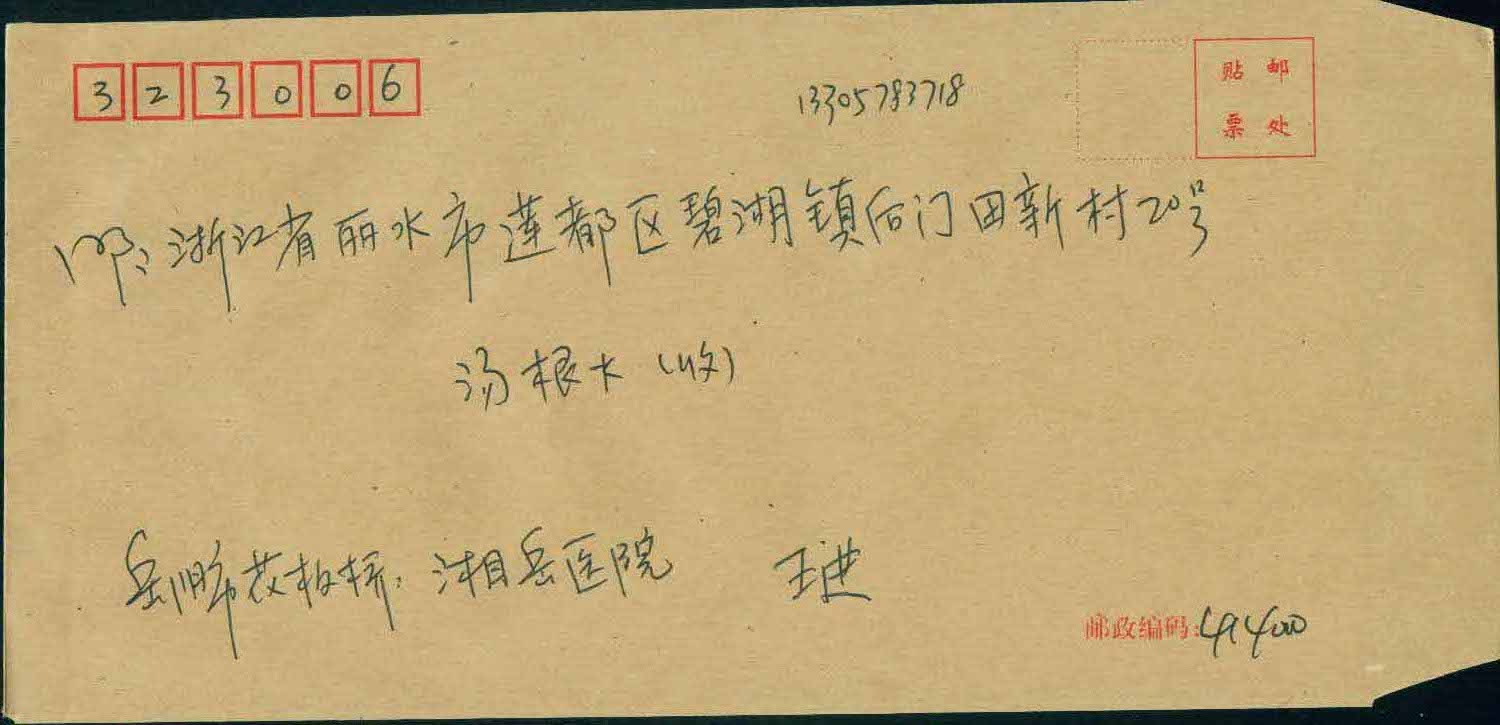 323006
13305783718
贴邮
票处
邮:浙江省丽水市莲都区碧湖镇后门田新村20号
汤根大(收)
岳阳市花板桥.湘岳医院 王进
邮政编码: